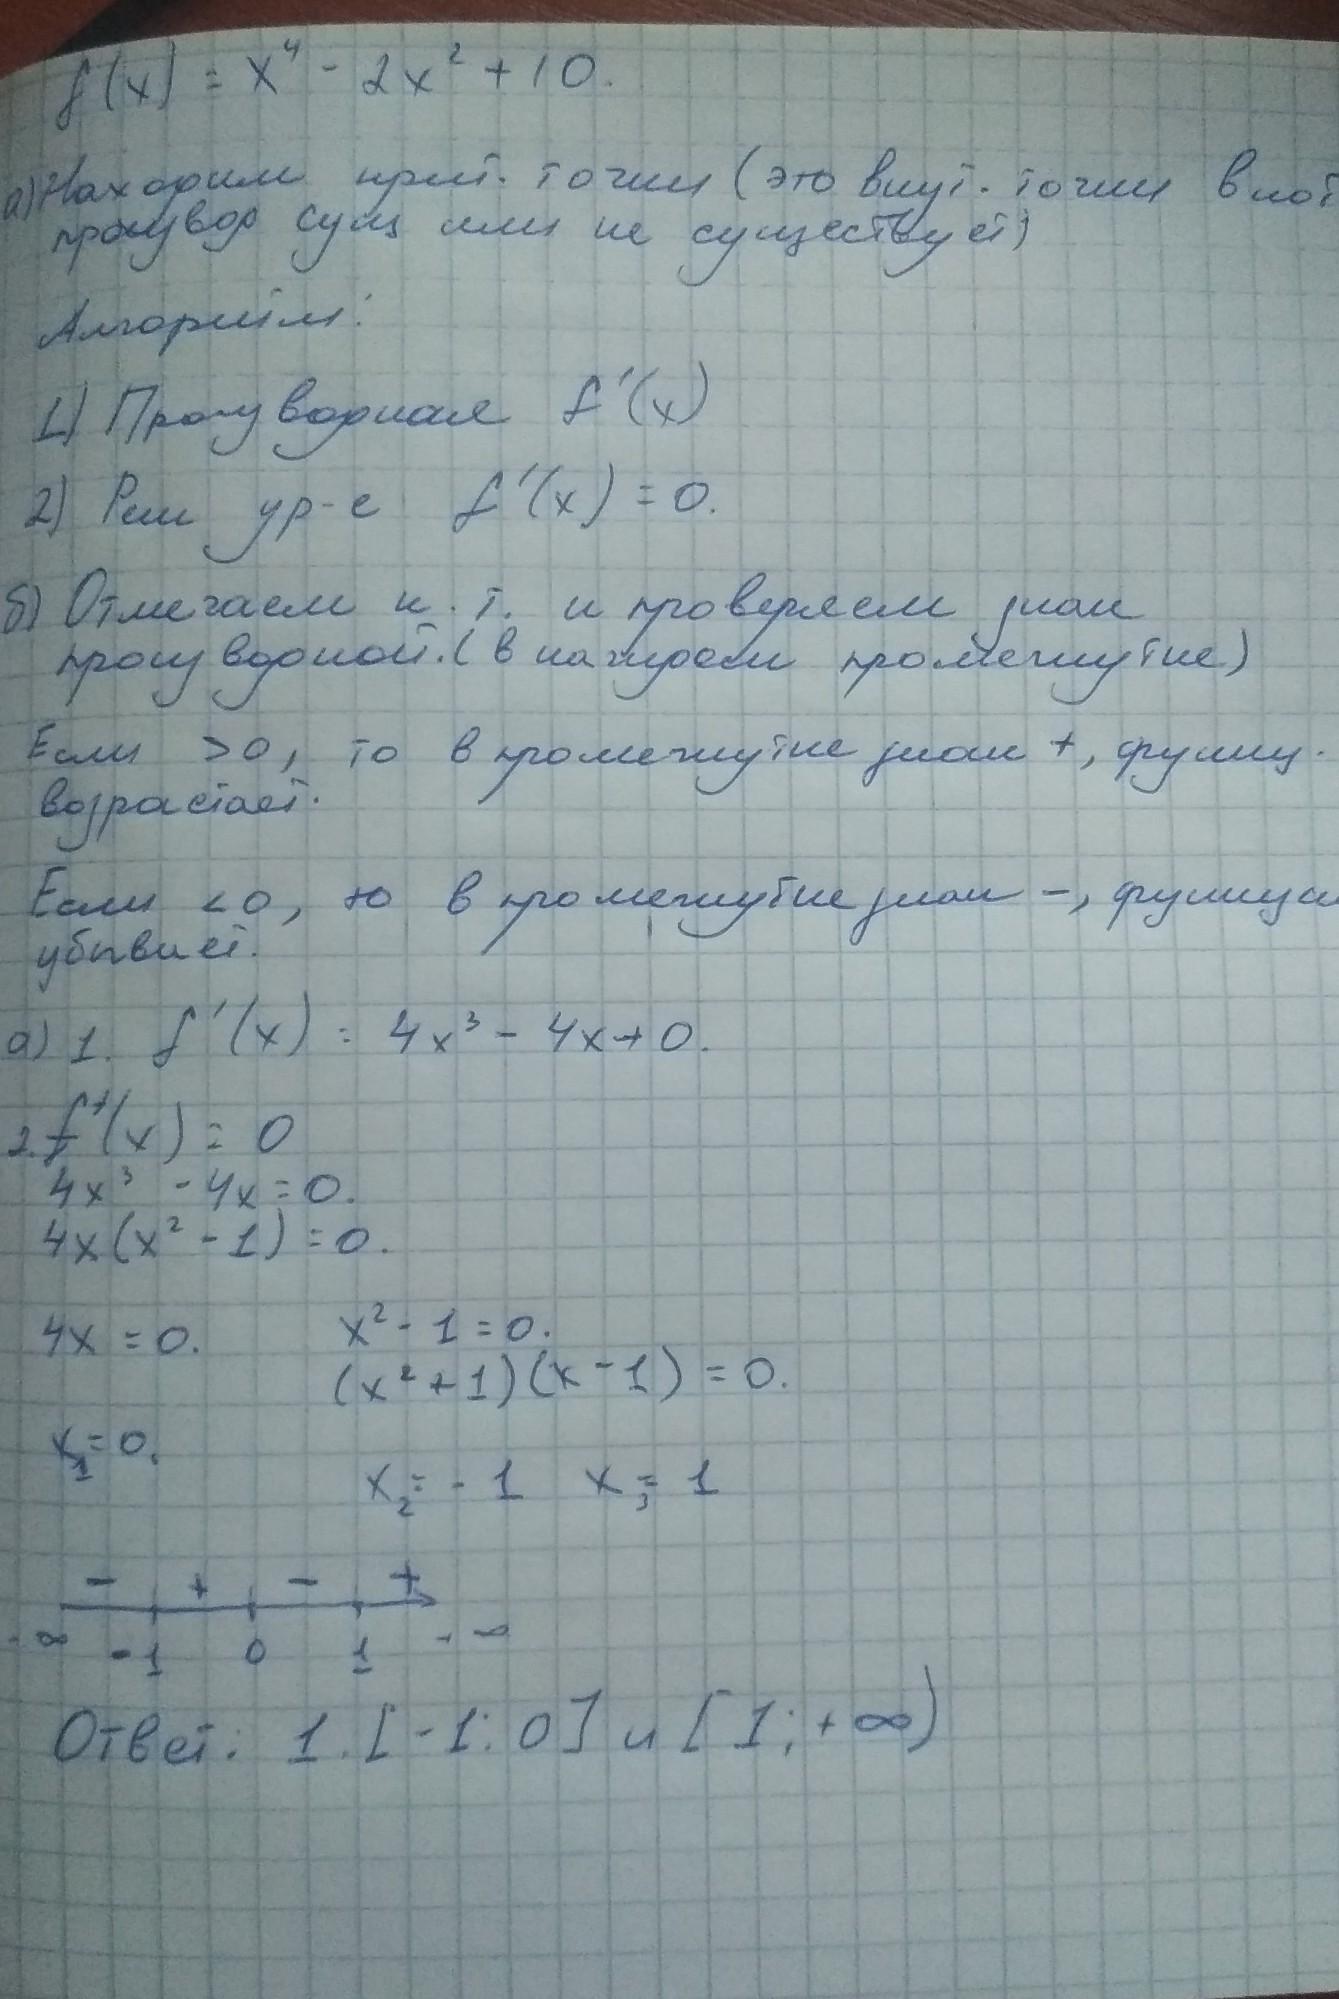 f(x) = x⁴ - 2x² + 10.
а) Находим крит. точки (это внут. точки в кот
производ сущ или не существует)
Алгоритм:
1) Производная f'(x)
2) Реш ур-е f'(x) = 0.
б) Отмечаем к. т. и проверяем знак
производной. (в каждом промежутке)
Если >0, то в промежутке знак +, функц.
возрастает.
Если <0, то в промежутке знак -, функция
убывает.
а) 1. f'(x) = 4x³ - 4x + 0.
2. f'(x) = 0
4x³ - 4x = 0.
4x(x² - 1) = 0.
4x = 0. x² - 1 = 0.
(x² + 1)(x - 1) = 0.
x₁ = 0.
x₂ = - 1 x₃ = 1
- + - +
-∞ -1 0 1 + ∞
Ответ: 1. [-1; 0] и [1; +∞)